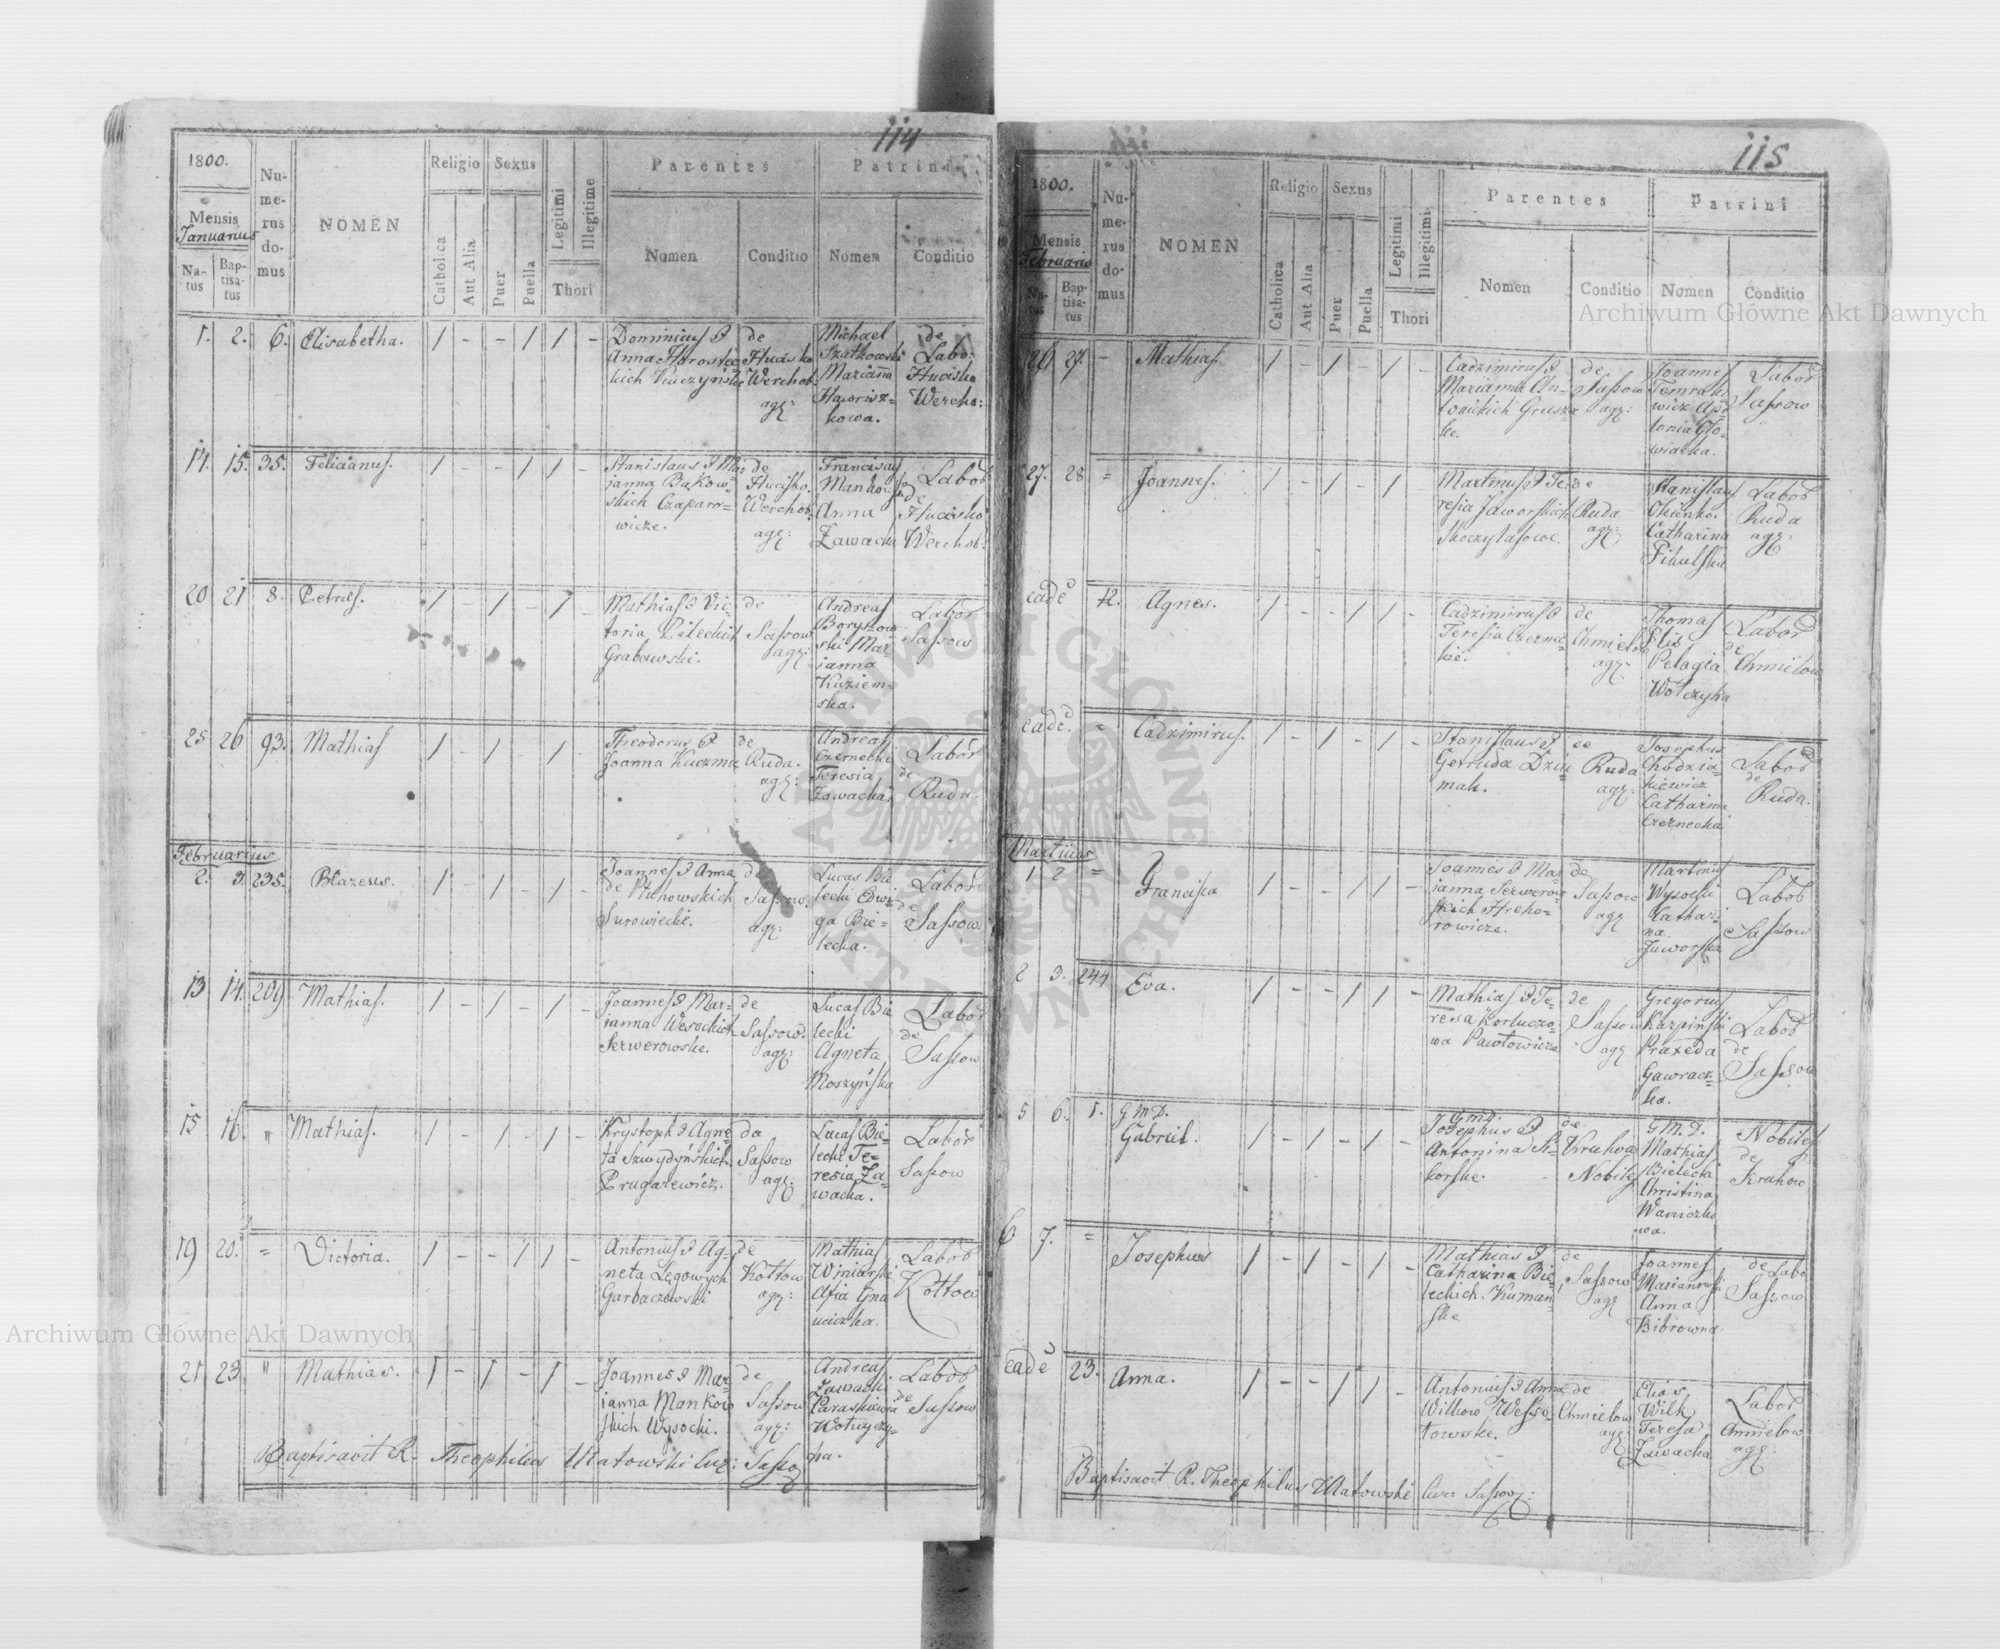 114
1800.
Mensis
Januarius
Natus
Baptisatus
Numerus domus
NOMEN
Religio
Catholica
Aut Alia
Sexus
Puer
Puella
Legitimi
Illegitime
Thori
Parentes
Nomen
Conditio
Patrini
Nomen
Conditio
1. 2. 6. Elisabetha. 1 - - 1 1 -
Dominicus &
Anna
Kuczyńskie
de
Werchob:
agr:
Michael
Szatkowski
Marianna
Hawrisz=
kowa.
de
Labo:
Hucisko
Wercho:
14. 15. 35. Felicianus. 1 - 1 1 -
Stanislaus & Mar
janna Bąkow=
skich Czaparo=
wicze.
de
Hucisko.
Werchob:
agr:
Francisus
Mankowski
Anna
Zawacka
Labor
de
Hucisko
Werchob:
20 21 8. Petrus. 1 - 1 - 1 -
Mathias & Vic=
toria Bileckich
Grabowski.
de
Sassow
agr:
Andreas
Boryszow
ski Mar=
janna
Kuziem=
ska.
Labor
Sassow
25 26 93. Mathias 1 - 1 - 1 -
Theodorus &
Joanna Kuczma
de
Ruda.
agr:
Andreas
Czernecki
Teresia
Zawacka
Labor
de
Ruda
Februarius
2. 3. 235. Blazeus. 1 - 1 - 1 -
Joannes & Anna
de Ptchowskich
Surowiecki.
de
Sassow.
agr:
Lucas Bie
lecki Edwi=
ga Bie=
lecka.
Labor
de
Sassow
13 14. 209 Mathias. 1 - 1 - 1 -
Joannes & Mar=
janna Wesockich
Serwerowskie.
de
Sassow.
agr:
Lucas Bie
lecki
Agneta
Moszyńska
Labor
de
Sassow
15 16. " Mathias. 1 - 1 - 1 -
Krystoph & Agne=
ta
Prugarewicz.
da
Sassow
agr:
Lucas Bie=
lecki Te=
resia Za=
wacka.
Labor
Sassow
19 20. = Victoria. 1 - - 1 1 -
Antonius & Ag=
neta Legowych
Garbaczewski
de
Kottow
agr:
Mathias
Winiarski
Afia Gna
Labor
Kottow
21 23. " Mathias. 1 - 1 - 1 -
Joannes & Mar=
janna Mankow
skich Wysocki.
de
Sassow
agr:
Andreas
Zawacki
Paraskiewia
Wołczyzy=
na.
Labor
de
Sassow
Baptisavit R. Theophilus Ulatowski Cur: Sasso
115
1800.
Mensis
Februaris
Natus
Baptisatus
Numerus domus
NOMEN
Religio
Catholica
Aut Alia
Sexus
Puer
Puella
Legitimi
Illegitimi
Thori
Parentes
Nomen
Conditio
Patrini
Nomen
Conditio
26 27. - Mathias. 1 - 1 - 1 -
Cadzimirus &
Marianna An=
tonickich Gruszc
kie.
de
Sassow
agr:
Joannes
Temrako
wicz Apo
lonia Gło=
wiacka.
Labor
Sassow
27. 28 = Joannes. 1 - 1 - 1 -
Martinus & Te=
resia Jaworskich
Skoczylasowe.
de
Ruda
agr:
Stanislaus
Okienko.
Catharina
Pikulska
Labor
Ruda
agr:
eade 12. Agnes. 1 - - 1 1 -
Cadzimirus &
Teresia Czernic=
kie.
de
Chmielow
agr:
Thomas
Elis
Pelagia
Wołczyna
Labor
de
Chmielow
eade. = Cadzimirus. 1 - 1 - 1 -
Stanislaus &
Getruda Dziu=
mak.
de
Ruda
agr:
Josephus
Chodzia=
kiewicz
Catharina
Czernecka
Labor
de
Ruda.
Martius
1 2 = Franciska 1 - - 1 1 -
Joannes & Mar=
janna Serwerow=
skich Hreho=
rowicze.
de
Sassow
agr
Martinus
Wysocki
Kathari=
na
Jaworska
Labor
Sassow
2 3. 244 Eva. 1 - - 1 1 -
Mathias & Te=
resa Korluczo=
wa Pawłowicze
de
Sassow
agr
Gregorius
Karpinski
Praxeda
Gawracz=
ka.
Labor
de
Sassow
5 6. 1. G M D.
Gabriel. 1 - 1 - 1 -
G M D.
Josephus &
Antonina Si=
korskie.
de
Krukow
Nobiles
G M. D.
Mathias
Bielecki
Christina
Waniczko
wa.
Nobiles
de
Krukow
6 7. = Josephus 1 - 1 - 1 -
Mathias &
Catharina Bie=
leckich Kuman=
skie
de
Sassow
agr
Joannes
Marianowski
Anna
Bibrowna.
de Labo
Sassow
eade 23. Anna. 1 - - 1 1 -
Antonius & Anna
Wilkow Wesse=
łowskie.
de
Chmielow
agr:
Elias
Wilk
Teresa
Zawacka
Labor
Chmielow
agr:
Baptisavit R. Theophilus Ulatowski Cur: Sassow:
Archiwum Główne Akt Dawnych
Archiwum Główne Akt Dawnych
ARCHIWUM GŁÓWNE AKT DAWNYCH